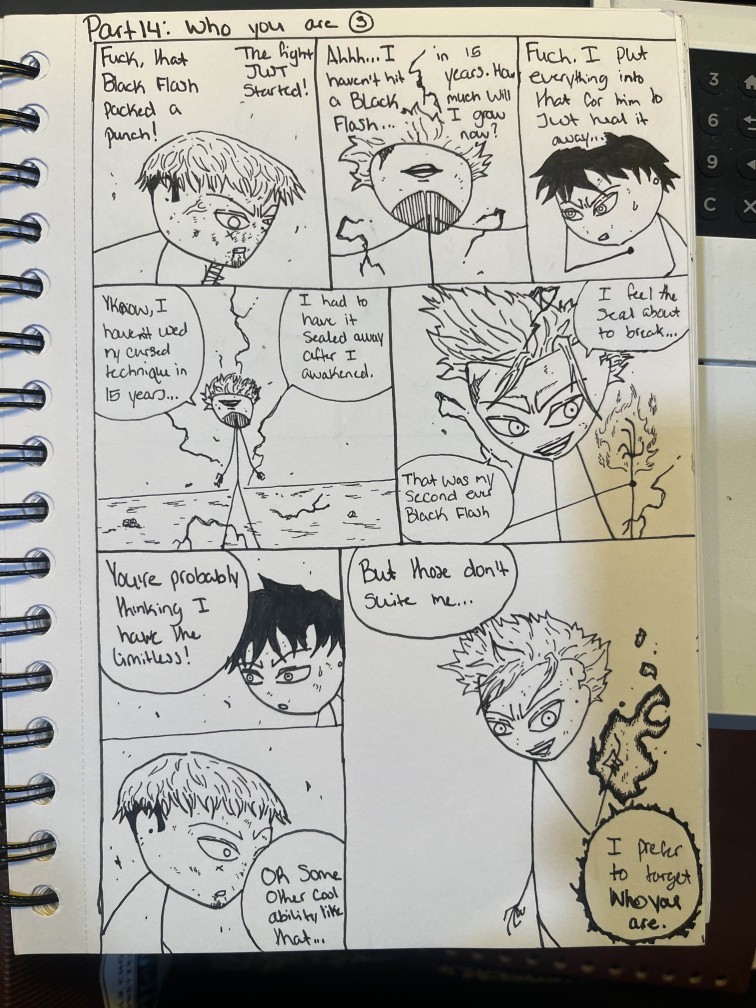 Part 14: Who you are ③
Fuck, that
Black Flash
packed a
punch!
The fight
JUST
Started!
Ahhh... I
haven't hit
a Black
Flash...
in 15
years. How
much will
I grow
now?
Fuck. I put
everything into
that for him to
Just heal it
away...
YKnow, I
haven't used
my cursed
technique in
15 years...
I had to
have it
Sealed away
after I
awakened.
I feel the
Seal about
to break...
That was my
Second ever
Black Flash
You're probably
thinking I
have the
limitless!
OR Some
Other Cool
ability like
that...
But those don't
Suite me...
I prefer
to target
Who you
are.
3
6
9
C
X